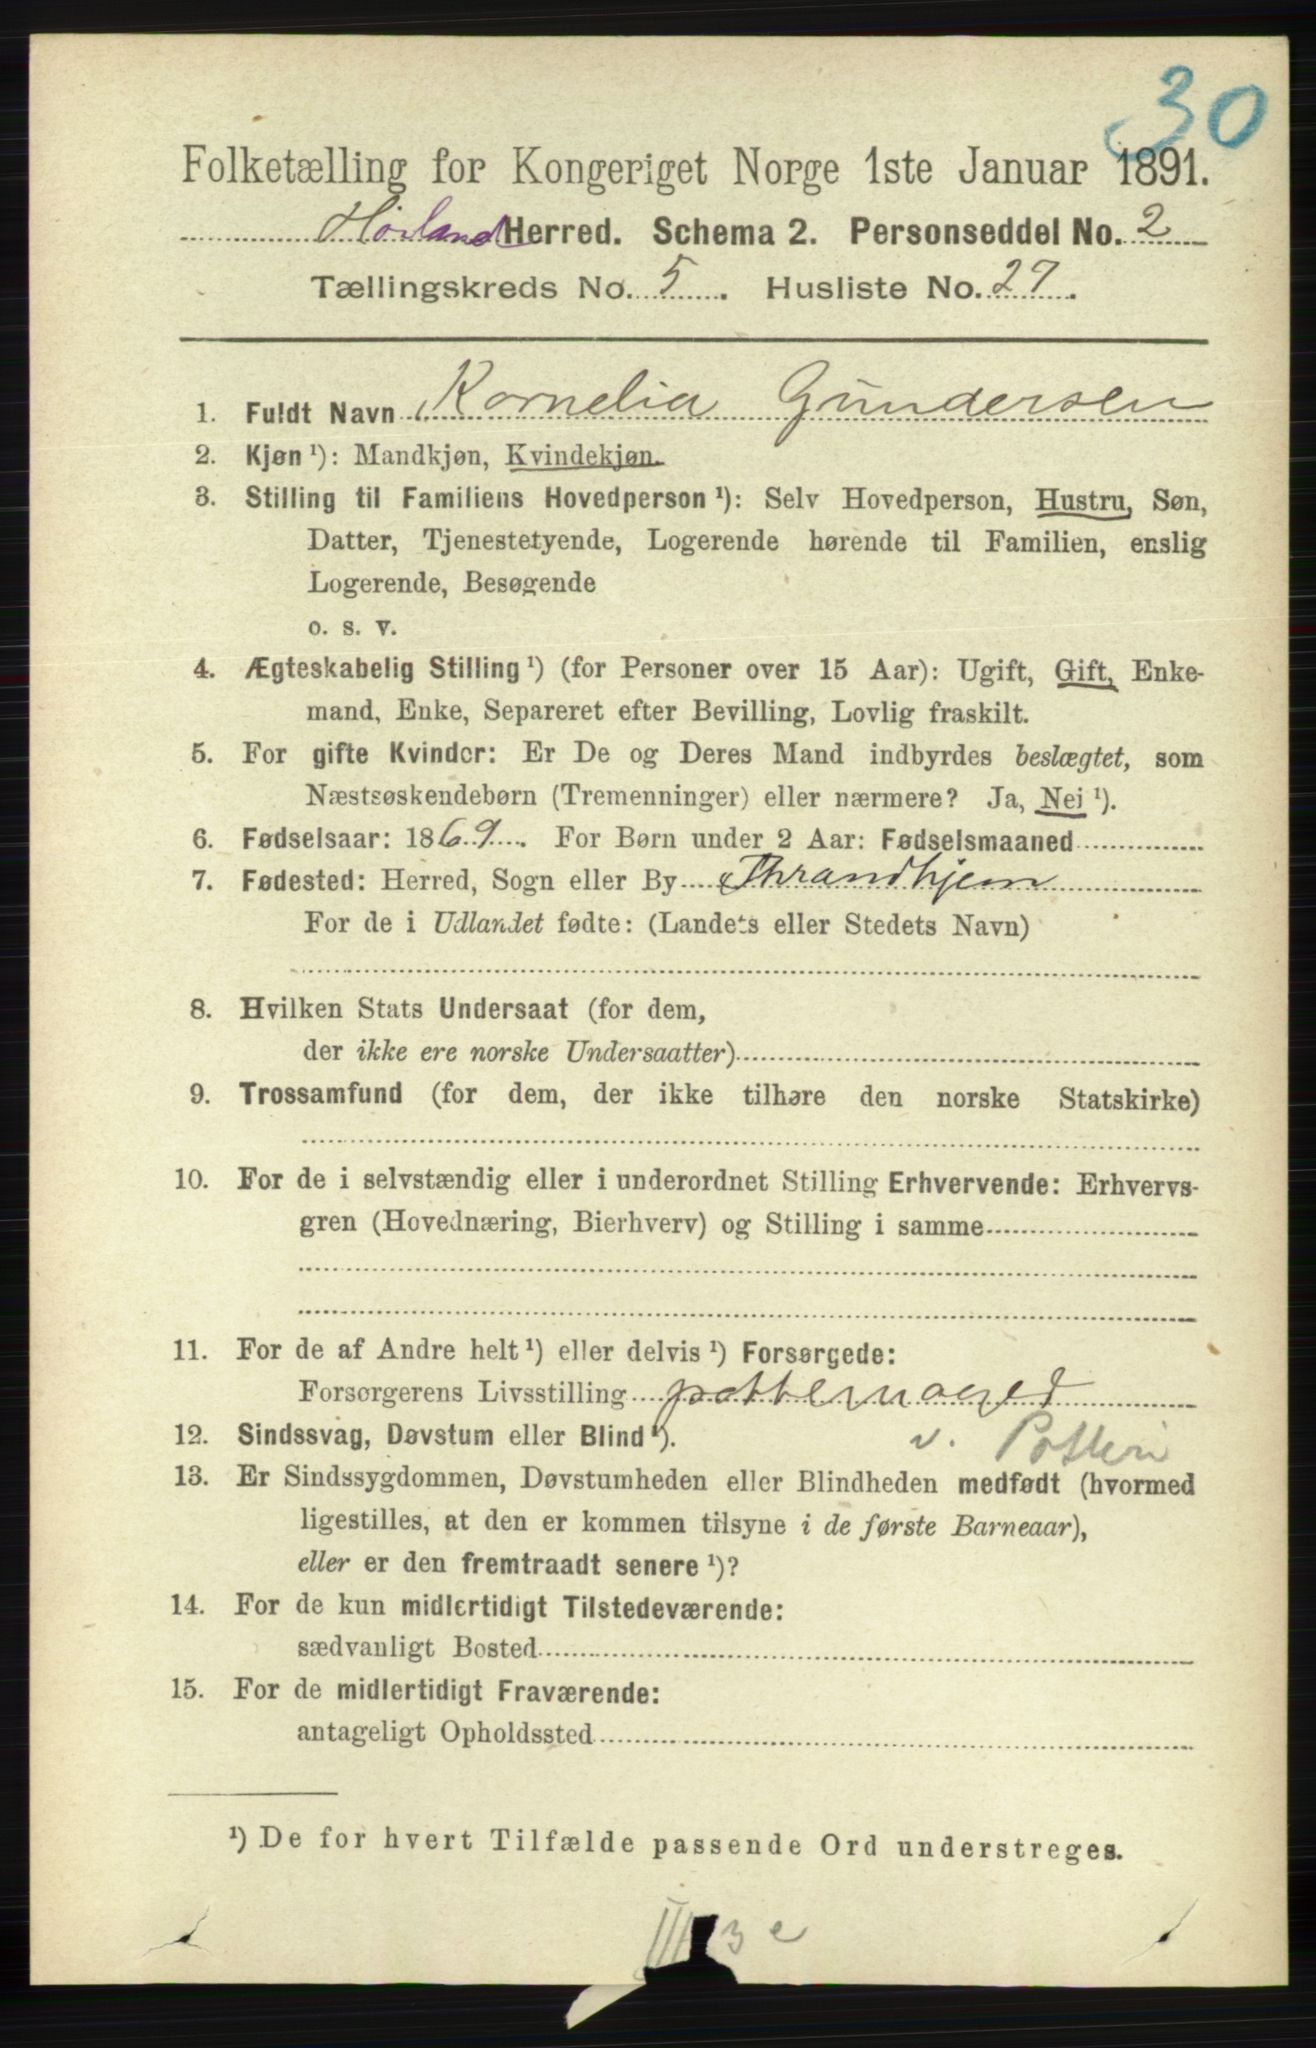 30
Folketælling for Kongeriget Norge 1ste Januar 1891.
Høland Herred. Schema 2. Personseddel No. 2
Tællingskreds No. 5. Husliste No. 27.
1. Fuldt Navn Kornelia Gundersen
2. Kjøn ¹): Mandkjøn, Kvindekjøn.
3. Stilling til Familiens Hovedperson ¹): Selv Hovedperson, Hustru, Søn,
Datter, Tjenestetyende, Logerende hørende til Familien, enslig
Logerende, Besøgende
o. s. v.
4. Ægteskabelig Stilling ¹) (for Personer over 15 Aar): Ugift, Gift, Enke-
mand, Enke, Separeret efter Bevilling, Lovlig fraskilt.
5. For gifte Kvinder: Er De og Deres Mand indbyrdes beslægtet, som
Næstsøskendebørn (Tremenninger) eller nærmere? Ja, Nei ¹).
6. Fødselsaar: 1869. For Børn under 2 Aar: Fødselsmaaned
7. Fødested: Herred, Sogn eller By Thrandhjem
For de i Udlandet fødte: (Landets eller Stedets Navn)
8. Hvilken Stats Undersaat (for dem,
der ikke ere norske Undersaatter)
9. Trossamfund (for dem, der ikke tilhøre den norske Statskirke)
10. For de i selvstændig eller i underordnet Stilling Erhvervende: Erhvervs-
gren (Hovednæring, Bierhverv) og Stilling i samme
11. For de af Andre helt ¹) eller delvis ¹) Forsørgede:
Forsørgerens Livsstilling
12. Sindssvag, Døvstum eller Blind ¹). v. Potteri
13. Er Sindssygdommen, Døvstumheden eller Blindheden medfødt (hvormed
ligestilles, at den er kommen tilsyne i de første Barneaar),
eller er den fremtraadt senere ¹)?
14. For de kun midlertidigt Tilstedeværende:
sædvanligt Bosted
15. For de midlertidigt Fraværende:
antageligt Opholdssted
¹) De for hvert Tilfælde passende Ord understreges.
3 e